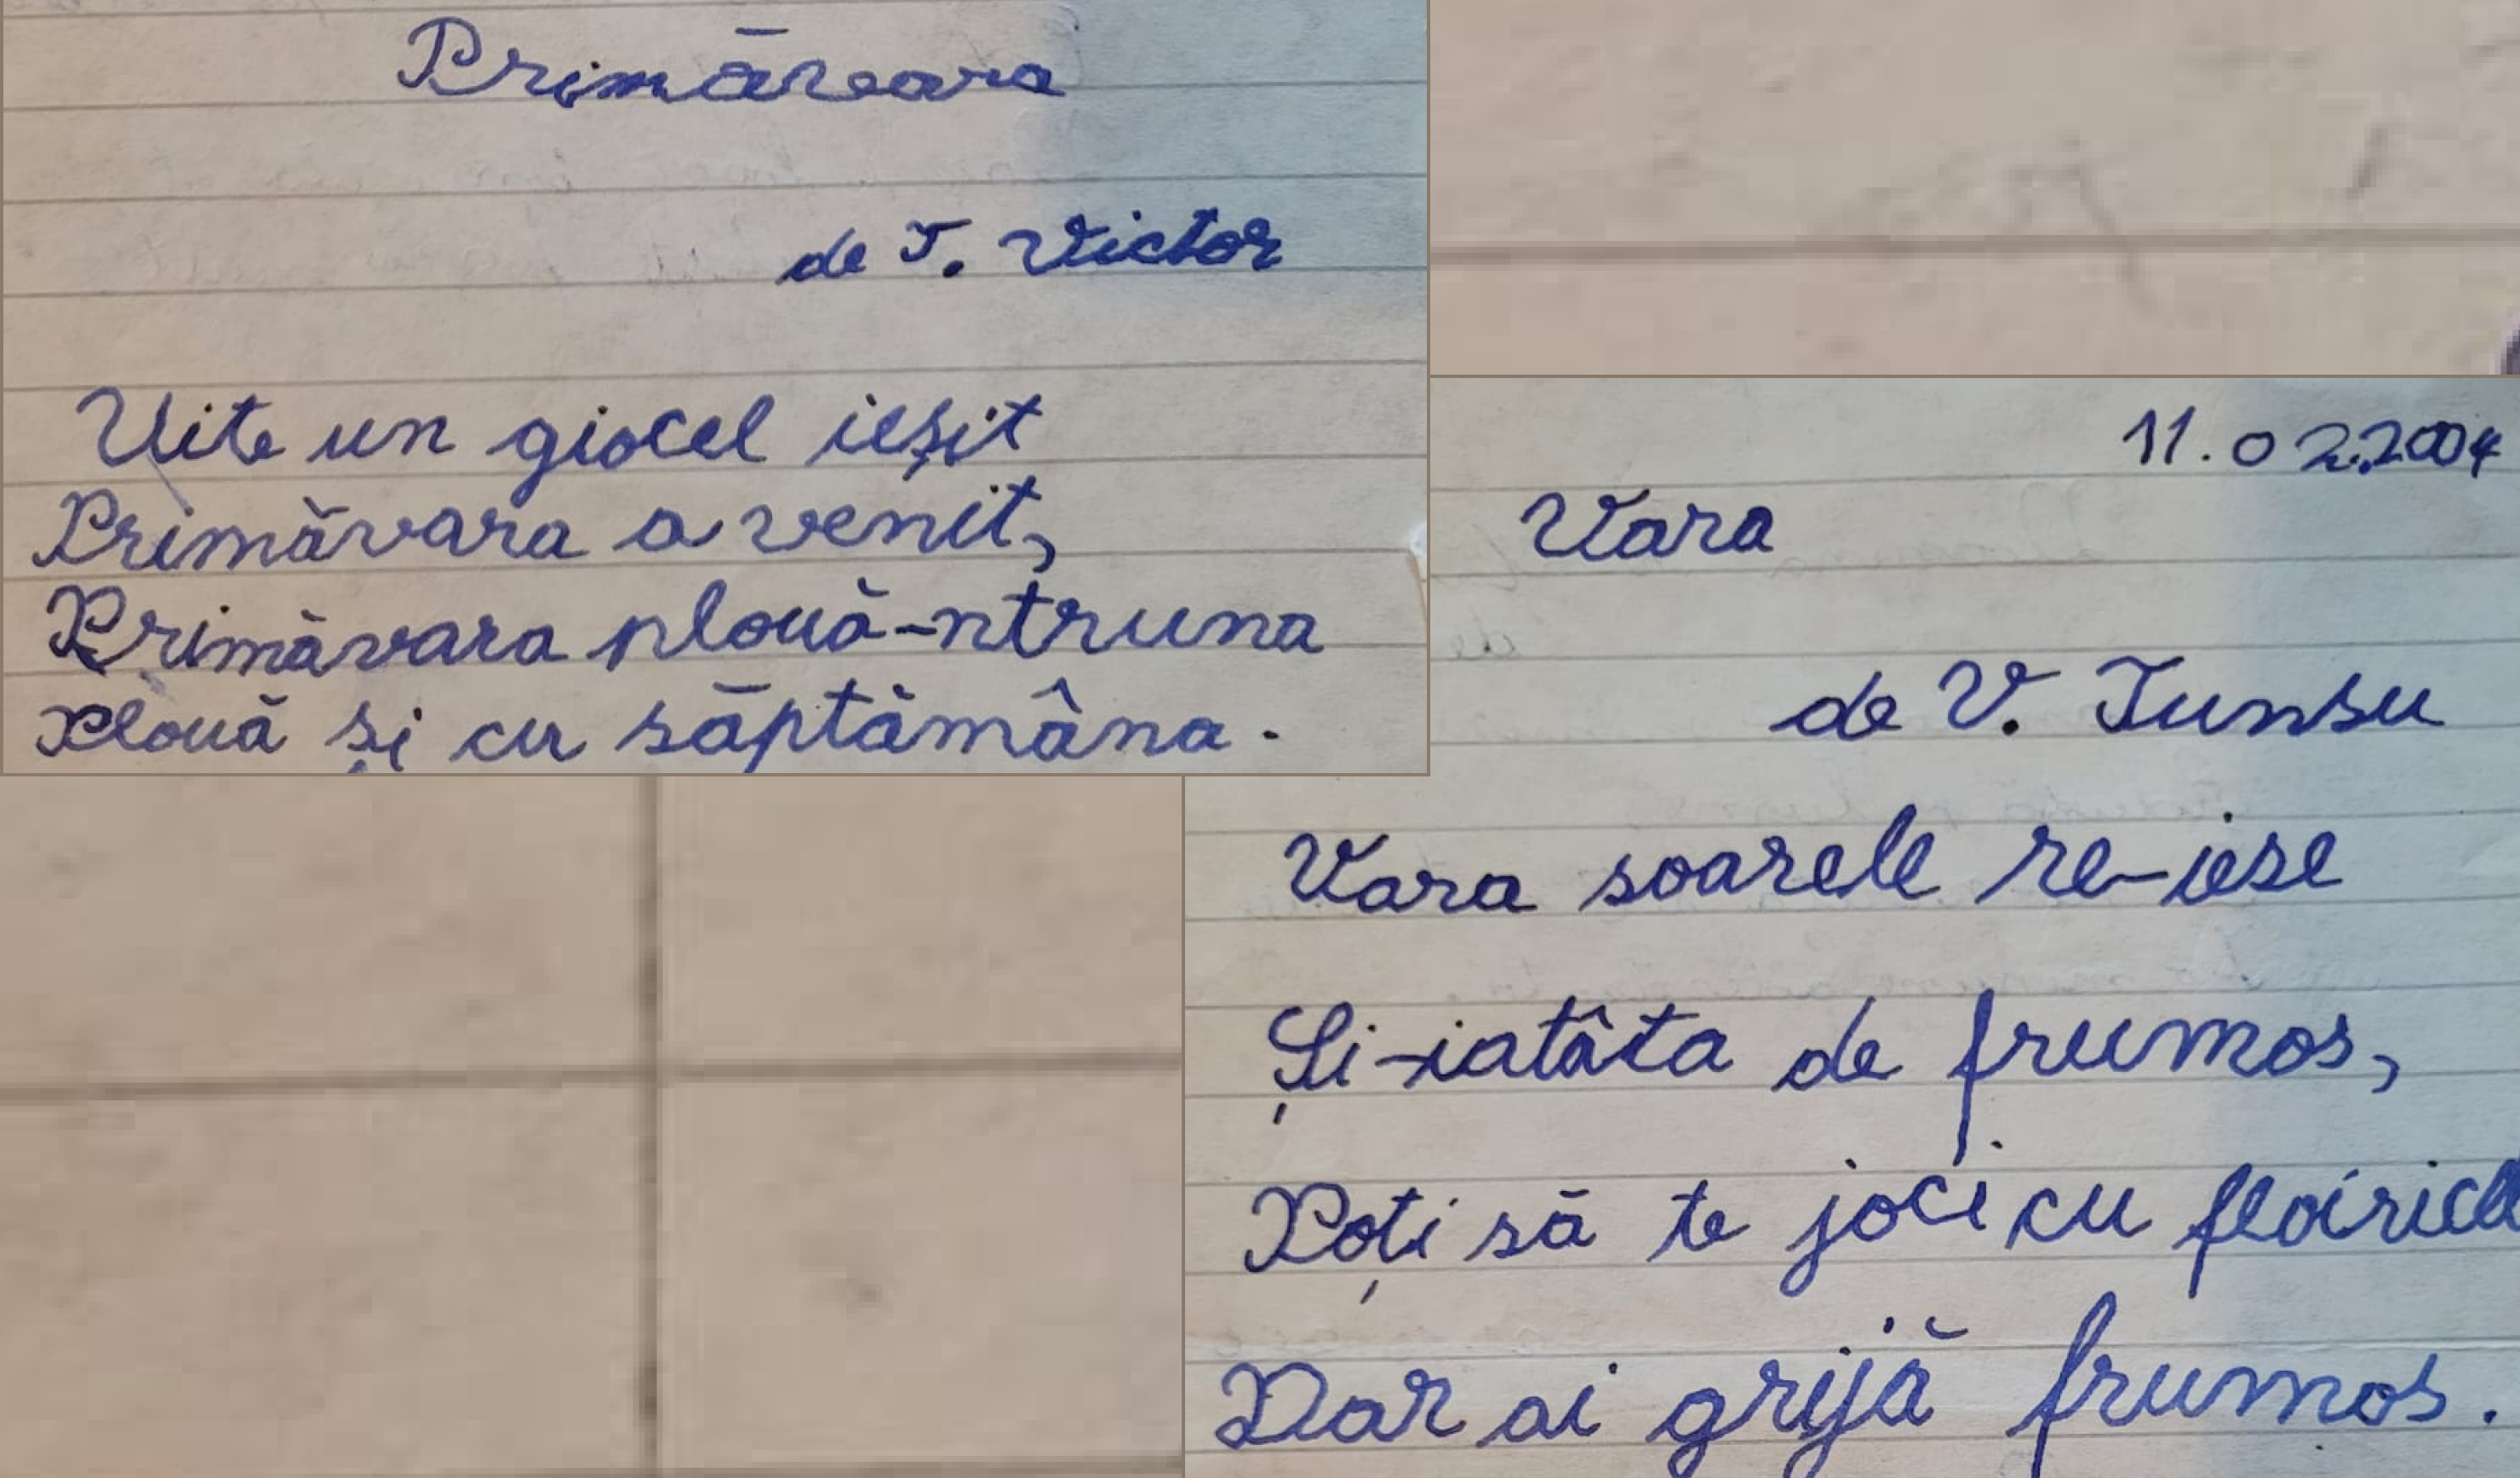 Primāvara
de T. Victor
Uite un giocel ieșit
Primăvara a venit,
Primăvara plouă-ntruna
Plouă și cu sāptămâna.
11.02.2004
Vara
de V. Tunsu
Vara soarele re-iese
Și-iatâta de frumos,
Poți să te joci cu
Dar ai grijă frumos.